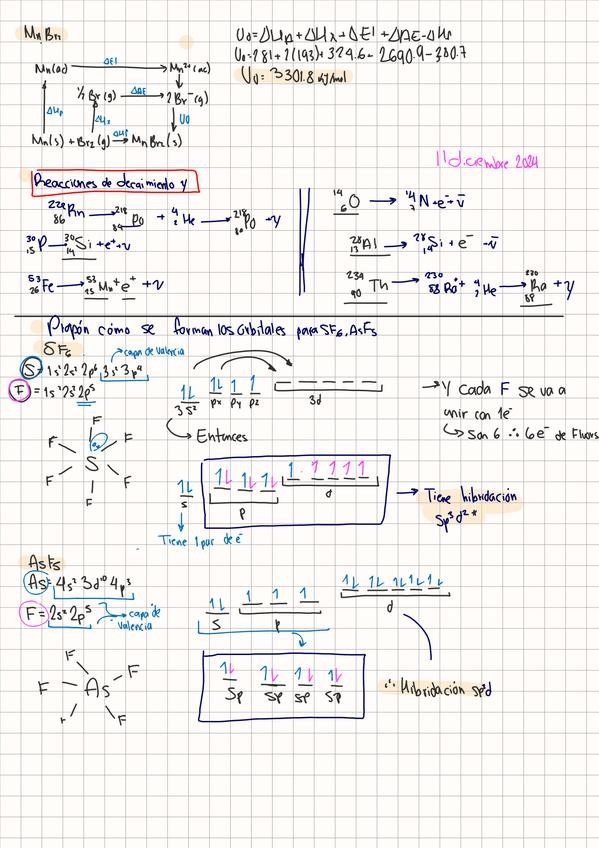 MnBr₂
U₀=ΔHₐ+ΔHₓ+ΔEI+ΔAE-ΔHf
U₀=281+2(193)+324.6-2690.9-380.7
U₀=3301.8 kJ/mol
Mn(ac) ΔEI Mn²⁺(ac)
½Br(g) ΔAE 2Br⁻(g)
U₀
Mn(s)+Br₂(g) → MnBr₂(s)
11 diciembre 2024
Reacciones de decaimiento γ
²²²₈₆Rn → ²¹⁸₈₄Po + ⁴₂He → ²¹⁸₈₀Po + γ
³⁰₁₅P → ³⁰₁₄Si + e⁺ + ν
⁵³₂₆Fe → ⁵³₂₅Mn + e⁺ + ν
¹⁴₆O → ¹⁴₇N + e⁻ + ν̄
²⁸₁₃Al → ²⁸₁₄Si + e⁻ -ν̄
²³⁴₉₀Th → ²³⁰₈₈Ra* + ⁴₂He → ²³⁰₈₈Ra + γ
Propón cómo se forman los orbitales para SF₆, AsF₅
SF₆
capa de valencia
S=1s²2s²2p⁶3s²3p⁴
F=1s²2s²2p⁵
3s² px py pz 3d
→Y cada F se va a
unir con 1e⁻
↳ Son 6 ∴ 6e⁻ de Fluors
↳ Entonces
F
F F
S
F F
F
s p d
→ Tiene hibridación
sp³d² *
Tiene 1 par de e⁻
AsF₅
As=4s²3d¹⁰4p³
F=2s²2p⁵
capa de
valencia
s p d
F
F As F
F F
sp sp sp sp
∴ Hibridación sp³d